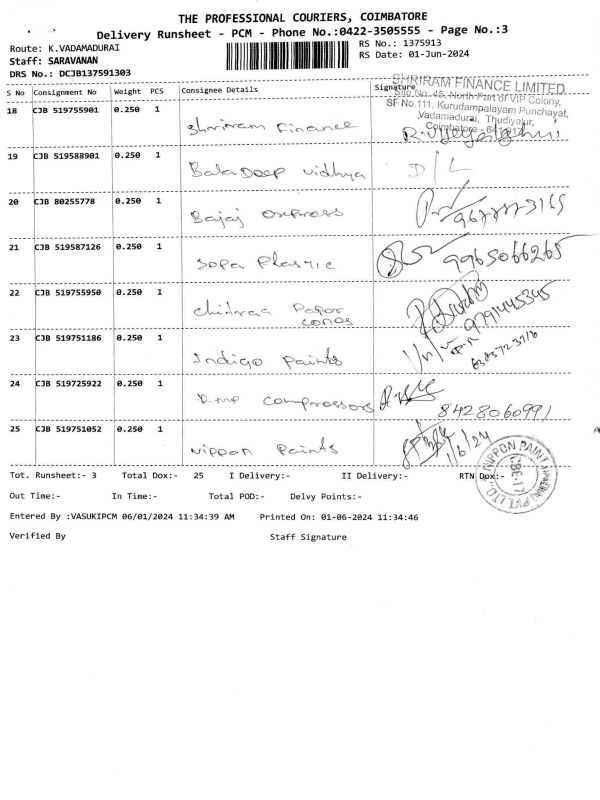 THE PROFESSIONAL COURIERS, COIMBATORE
Delivery Runsheet - PCM - Phone No.:0422-3505555 - Page No.:3
Route: K.VADAMADURAI
RS No.: 1375913
Staff: SARAVANAN
RS Date: 01-Jun-2024
DRS No.: DCJB137591303
S No Consignment No Weight PCS Consignee Details Signature
SHRIRAM FINANCE LIMITED
Site No. 45, North Part of VIP Colony,
SF No.111, Kurudampalayam Punchayat,
Vadamadurai, Thudiyalur,
Coimbatore - 641017
18 CJB 519755901 0.250 1 Shriram Finance
19 CJB 519588901 0.250 1 BalaDeep vidhya D/L
20 CJB 80255778 0.250 1 Bajaj
21 CJB 519587126 0.250 1 Plastic 9965066265
22 CJB 519755950 0.250 1 Chitraa Papar cones 9791445345
23 CJB 519751186 0.250 1 Indigo Paints
24 CJB 519725922 0.250 1 Compressors 8428060991
25 CJB 519751052 0.250 1 Nippon Paints 1/6/24
NIPPON PAINT
CBE-17
Tot. Runsheet:- 3 Total Dox:- 25 I Delivery:- II Delivery:- RTN Dox:-
Out Time:- In Time:- Total POD:- Delvy Points:-
Entered By :VASUKIPCM 06/01/2024 11:34:39 AM Printed On: 01-06-2024 11:34:46
Verified By Staff Signature